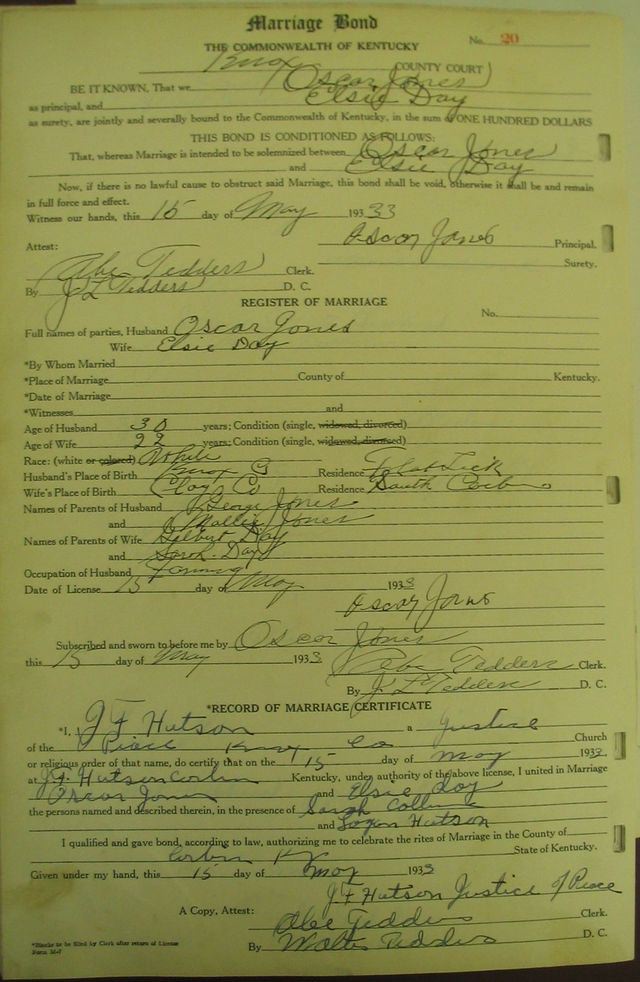 Marriage Bond
No. 20
THE COMMONWEALTH OF KENTUCKY
Knox COUNTY COURT
BE IT KNOWN, That we Oscar Jones
as principal, and Elsie Day
as surety, are jointly and severally bound to the Commonwealth of Kentucky, in the sum of ONE HUNDRED DOLLARS
THIS BOND IS CONDITIONED AS FOLLOWS:
That, whereas Marriage is intended to be solemnized between Oscar Jones
and Elsie Day
Now, if there is no lawful cause to obstruct said Marriage, this bond shall be void, otherwise it shall be and remain
in full force and effect.
Witness our hands, this 15 day of May 193 33
Oscar Jones Principal.
Attest: Surety.
Abe Tedders Clerk.
By J L Tedders D. C.
REGISTER OF MARRIAGE
No.
Full names of parties, Husband Oscar Jones
Wife Elsie Day
*By Whom Married
*Place of Marriage County of Kentucky.
*Date of Marriage
*Witnesses and
Age of Husband 30 years; Condition (single, widowed, divorced)
Age of Wife 22 years; Condition (single, widowed, divorced)
Race: (white or colored) White
Husband's Place of Birth Knox Residence Lick
Wife's Place of Birth Clay Co Residence South Corbin
Names of Parents of Husband George Jones
and Mollie Jones
Names of Parents of Wife Gilbert Day
and Sarah Day
Occupation of Husband Farming
Date of License 15 day of May 1933
Oscar Jones
Subscribed and sworn to before me by Oscar Jones
this 15 day of May 1933 Abe Tedders Clerk.
By J L Tedders D. C.
*RECORD OF MARRIAGE CERTIFICATE
*I, J F Hutson a Justice
of the Peace Knox Co Church
or religious order of that name, do certify that on the 15 day of May 1933
at J F Hutson Corbin Kentucky, under authority of the above license, I united in Marriage
Oscar Jones and Elsie Day
the persons named and described therein, in the presence of Sarah Collins
and Logan Hutson
I qualified and gave bond, according to law, authorizing me to celebrate the rites of Marriage in the County of
Corbin Ky State of Kentucky.
Given under my hand, this 15 day of May 1933
J F Hutson Justice of Peace
A Copy, Attest: Abe Tedders Clerk.
By Walter Tedders D. C.
*Blanks to be filled by Clerk after return of License
Form M-7